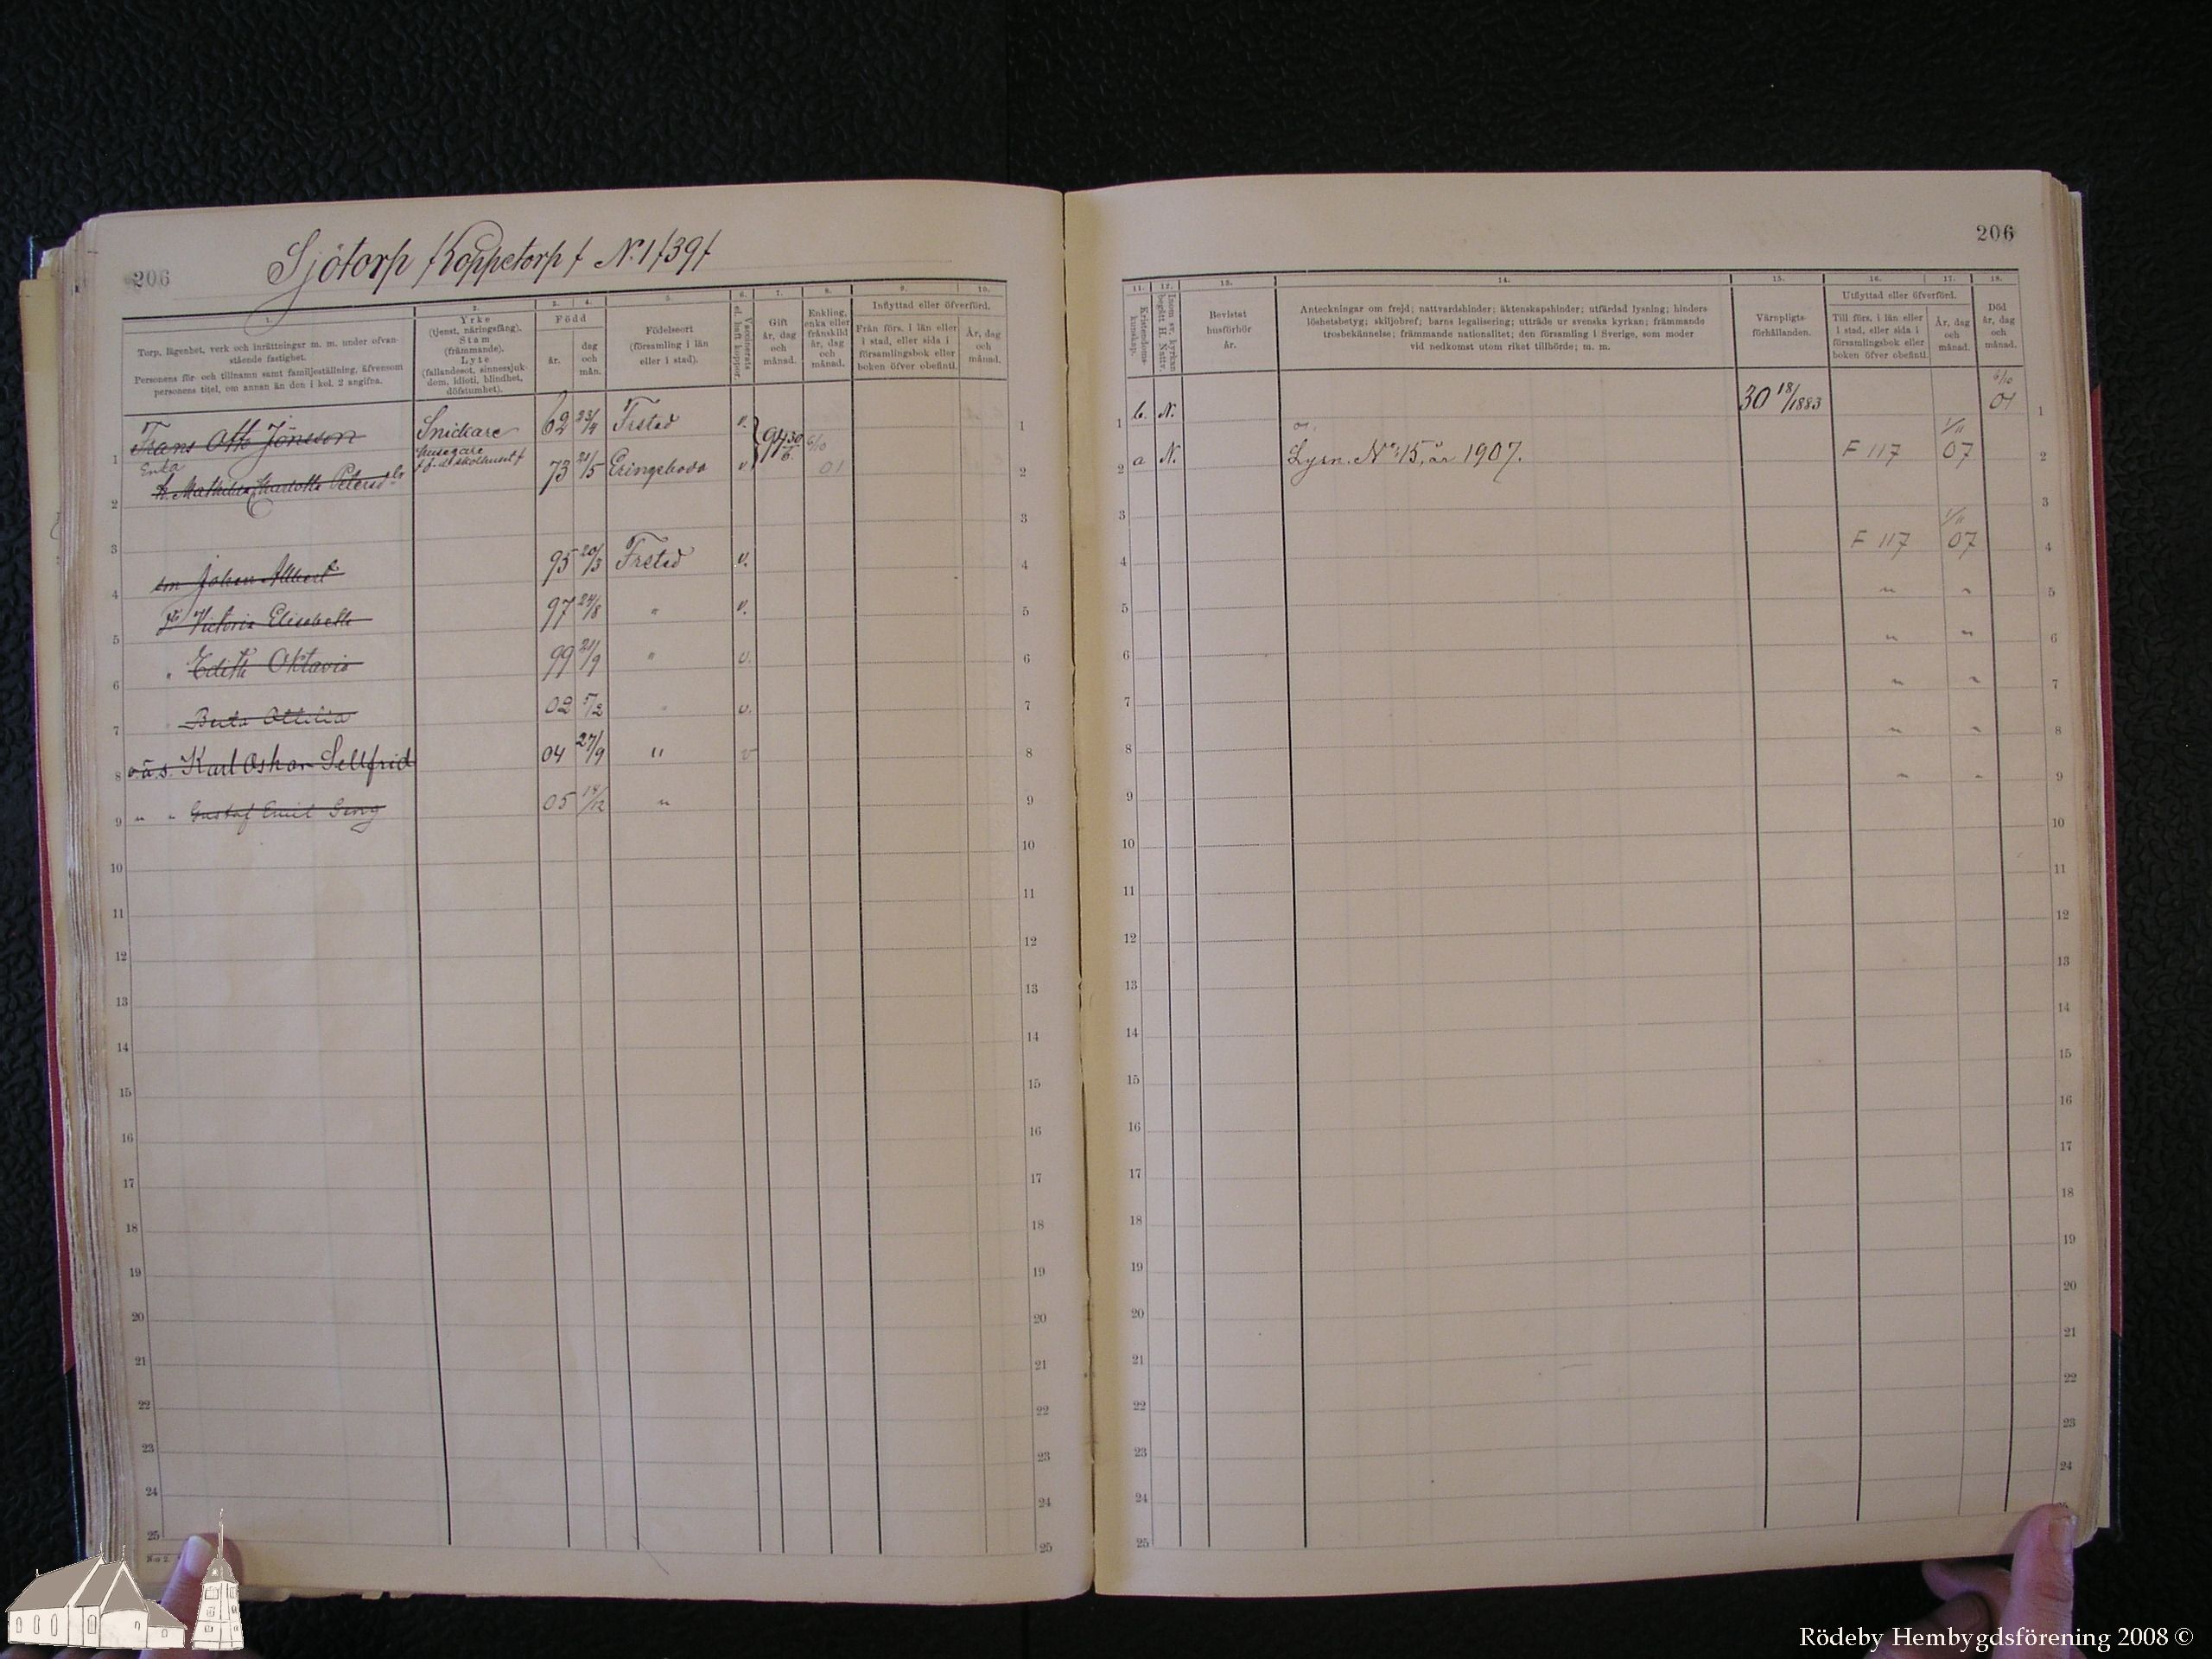 206
Sjötorp /Koppetorp/ N. 1 /39/
1. 2. 3. 4. 5. 6. 7. 8. 9. 10.
Torp, lägenhet, verk och inrättningar m. m. under ofvanstående fastighet.
Personens för- och tillnamn samt familjeställning, äfvensom personens titel, om annan än den i kol. 2 angifna.
Yrke (tjenst, näringsfång). Stam (främmande). Lyte (fallandesot, sinnessjukdom, idioti, blindhet, döfstumhet).
Född
år. dag och mån.
Födelseort (församling i län eller i stad).
Vaccinerats el. haft koppor.
Gift år, dag och månad.
Enkling, enka eller frånskild år, dag och månad.
Inflyttad eller öfverförd.
Från förs. i län eller i stad, eller sida i församlingsbok eller boken öfver obefintl.
År, dag och månad.
1 Frans Otto Jönsson Snickare 62 23/4 Frstad v. 94 30/6 1
Enka husegare f. f. d. skolhuset f
2 h. Mathilda Charlotta Petersd 73 21/5 Eringeboda v 6/10 01 2
3 3
4 sn Johan Albert 95 20/3 Frstad v. 4
5 Victoria Elisabeth 97 24/8 " v. 5
6 " Edith Oktavia 99 21/9 " v. 6
7 Berta Ottilia 02 5/2 " v. 7
8 o.ä.s. Karl Oskar Sellfrid 04 27/9 " v 8
9 " " Gustaf Emil Georg 05 14/12 " 9
10 10
11 11
12 12
13 13
14 14
15 15
16 16
17 17
18 18
19 19
20 20
21 21
22 22
23 23
24 24
25 25
206
11. 12. 13. 14. 15. 16. 17. 18.
Kristendomskunskap.
Inom sv. kyrkan begått H. Nattv.
Bevistat husförhör år.
Anteckningar om frejd; nattvardshinder; äktenskapshinder; utfärdad lysning; hinderslöshetsbetyg; skiljobref; barns legalisering; utträde ur svenska kyrkan; främmande trosbekännelse; främmande nationalitet; den församling i Sverige, som moder vid nedkomst utom riket tillhörde; m. m.
Värnpligtsförhållanden.
Utflyttad eller öfverförd.
Till förs. i län eller i stad, eller sida i församlingsbok eller boken öfver obefintl.
År, dag och månad.
Död år, dag och månad.
1 b. N. 30 18/1883 6/10 01 1
2 a N. Lysn. No 15, år 1907. F 117 1/11 07 2
3 3
4 F 117 1/11 07 4
5 " " 5
6 " " 6
7 " " 7
8 " " 8
9 " " 9
10 10
11 11
12 12
13 13
14 14
15 15
16 16
17 17
18 18
19 19
20 20
21 21
22 22
23 23
24 24
25
Rödeby Hembygdsförening 2008 ©